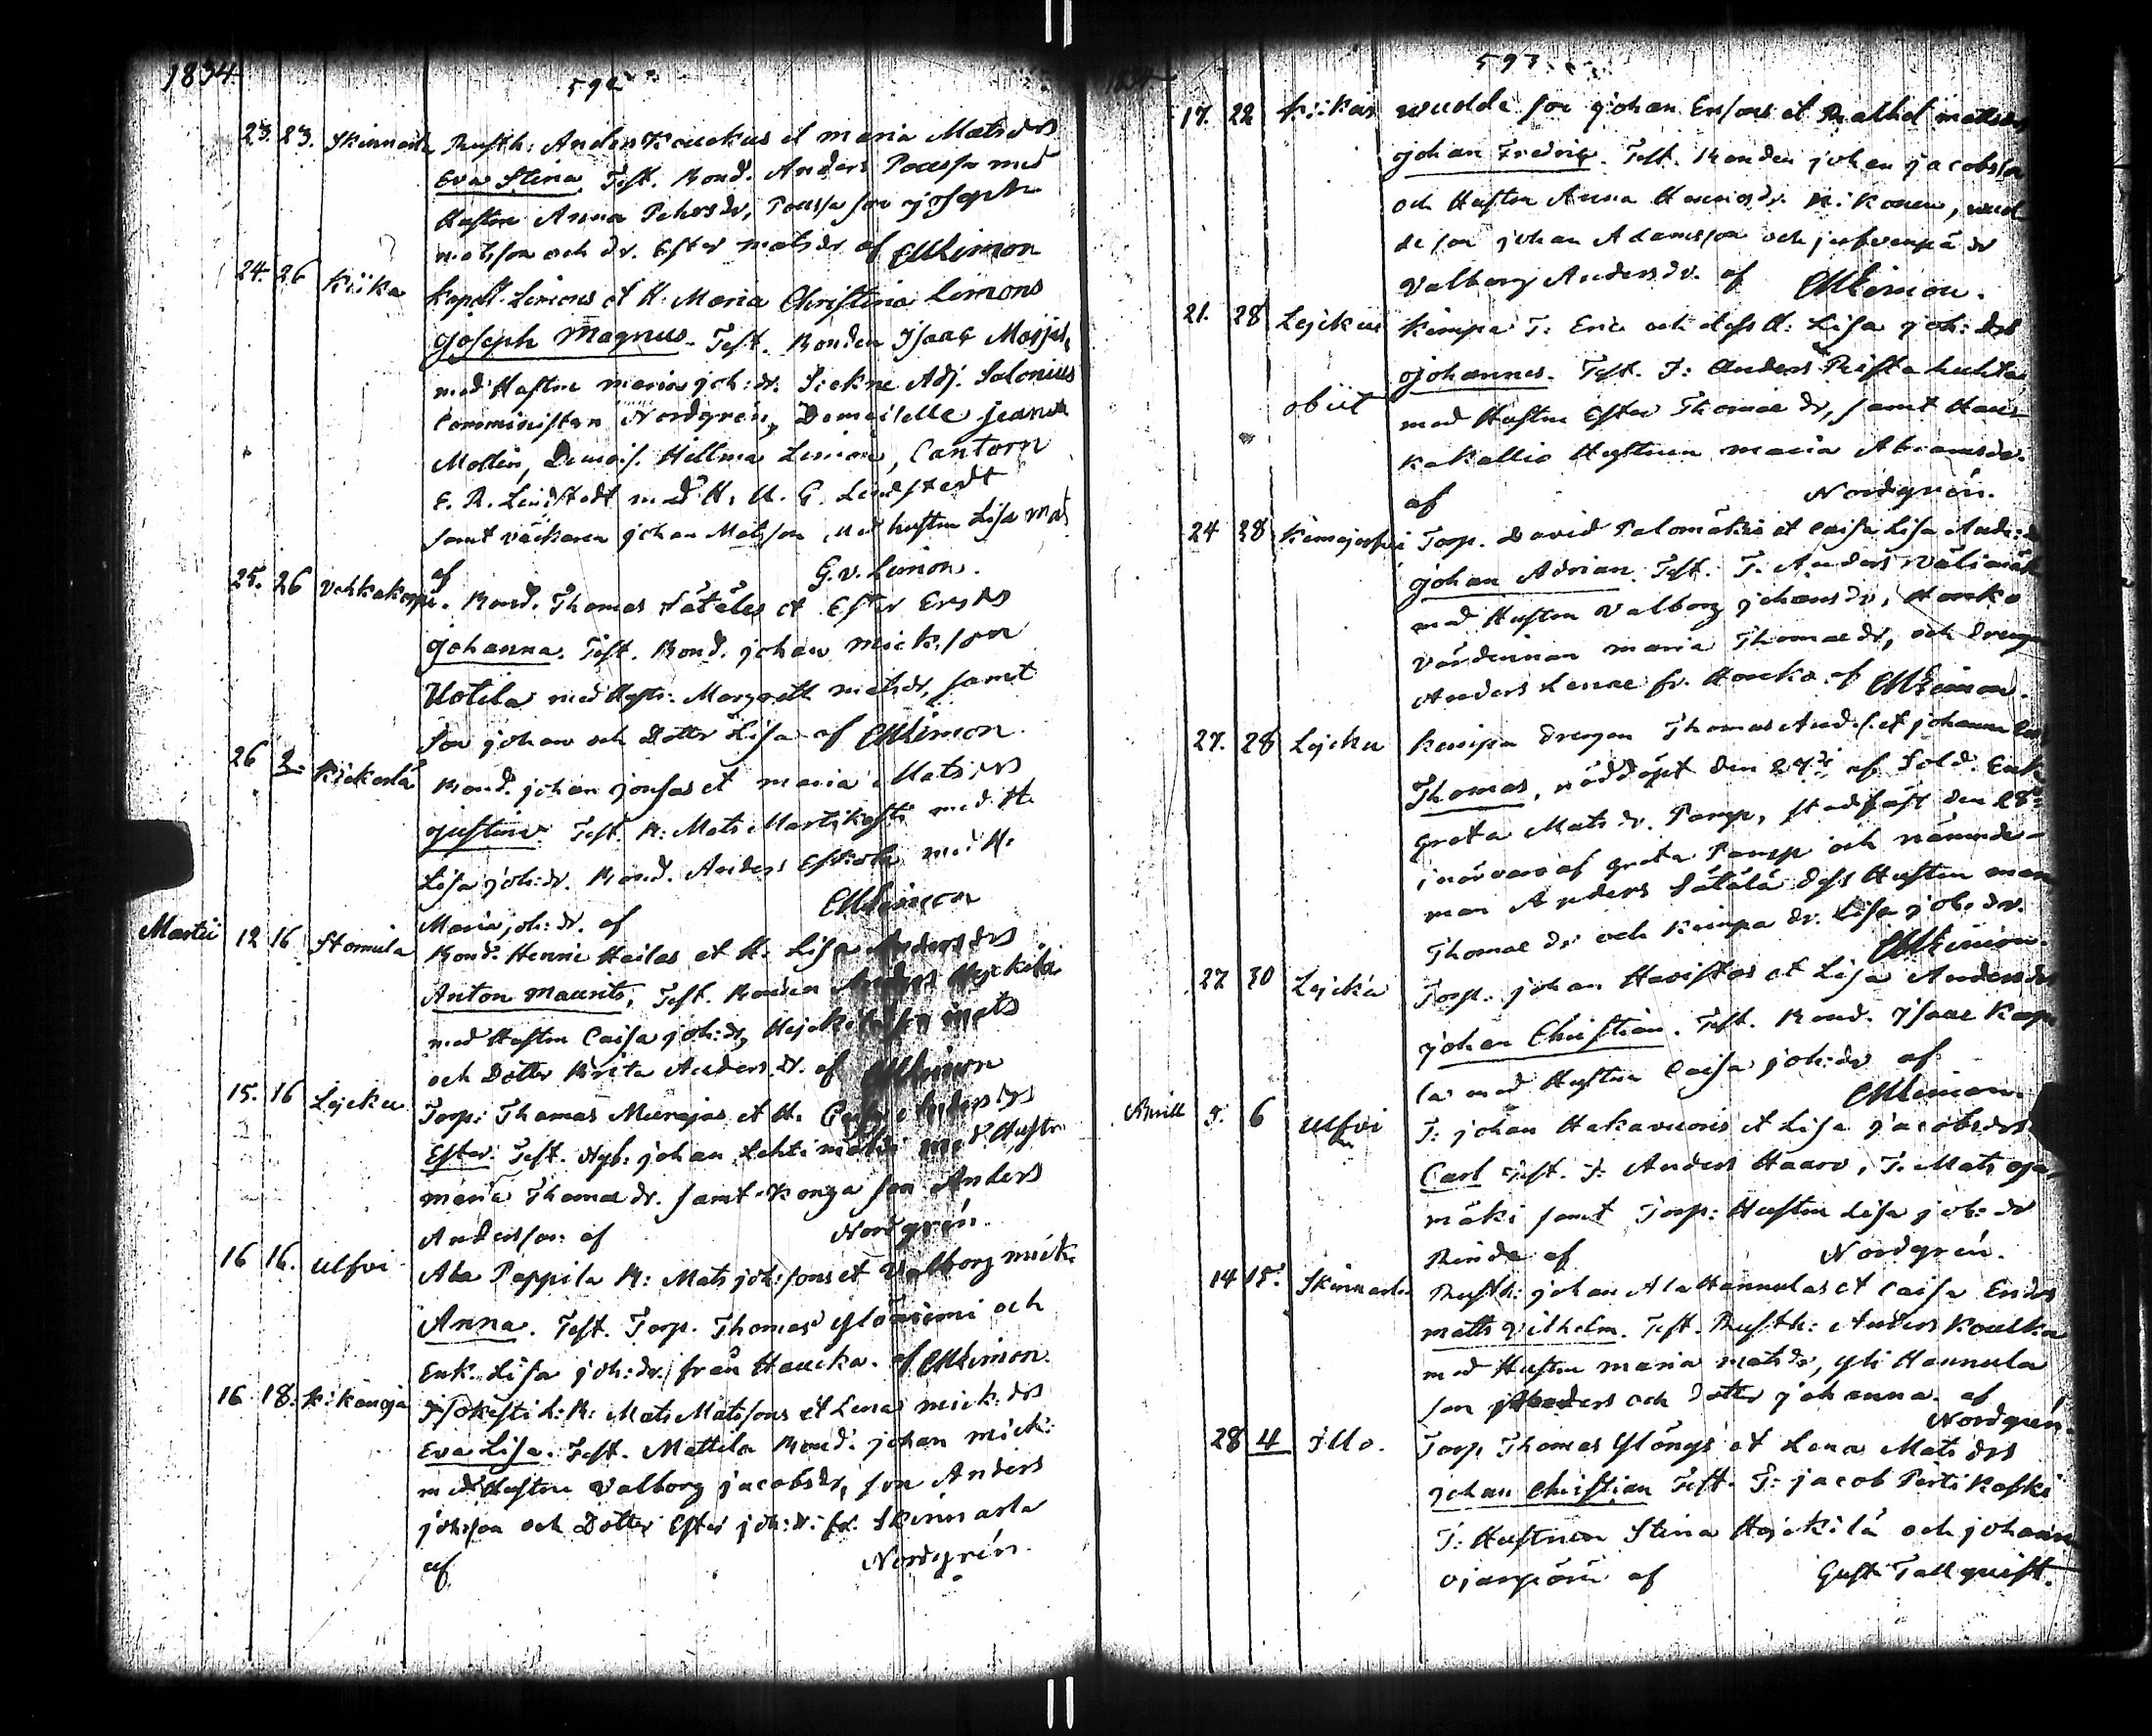 1834
592
23. 23. Skinnarla Rusth: Anders Kouckus et maria Matsdrs
Eva Stina. Test. Bond. Anders Poussa med
Hustru Anna Petersdr, Poussa son joseph
matsson och dr. Ester matsdr af CMLimon
24. 26 Kiika Kapell. Limons et H. Maria Christina Limons
Joseph Magnus. Test. Bonden Isaac
med Hustru maria joh:dr. Adj. Salonius
Comministern Nordgrén, Demoiselle jeanet
Mollin, Demois. Hillma Limon, Cantorn
E. R. Lindstedt med H. U. G. Lindstedt
samt väckaren johan Matsson, med hustru Lisa mats
af G. v. Limon.
25. 26 Bond. Thomas Sätäles et Ester Ersdrs
johanna. Test. Bond. johan mickson
Uotila med Hustr: Margrett matsdr, samt
Son johan och Dotter Lisa af CMLimon.
26 2. Bond. johan jonsas et maria Matsdrs
justina. Test. B: Mats Martikosti med H.
Lisa joh:dr. Bond. Anders Eskola med H.
Maria joh:dr. af CMLimon
Martii 12 16 Stomila Bond. Henric Heilas et H. Lisa Andersdrs
Anton maurits, Test. Bonden Anders Hejckilä
med Hustru Caisa joh:dr, mats
och Dotter Brita Anders dr. af CMLimon
15. 16 Lejcku Torp: Thomas Murajas et H. Andersdrs
Ester. Test. Nyb: johan Lehtimäki med Hustr
maria Thomae dr. samt Konga son Anders
Andersson af Nordgrén.
16 16. Ulfvi Ala Pappila B: Mats joh:sons et Valborg mick
Anna. Test. Torp. Thomas Yloniemi och
Enk. Lisa joh:dr. från Haucka. af CMLimon.
16 18. Kikanoja Isokesti h: B: Mats Matssons et Lena mick:drs
Eva Lisa. Test. Mattila Bond. johan mick:
med Hustru Valborg jacobsdr, son Anders
johsson och Dotter Ester joh:dr. fr. Skinnarla
af Nordgrén.
593.
17. 22 Kiikas wudde son johan Ersons et matsdrs
johan Fredric. Test. Bonden johan jacobsson
och Hustru Anna Henricsdr. Kikanen, wud
de son johan Adamsson och dr
Valborg Andersdr. af CMLimon.
21. 28 Lejcku Kimpa T: Eric och dess H: Lisa joh:drs
johannes. Test. T: Anders Ristahuhta
obiit med Hustru Ester Thomae dr, samt Haur
kakallio Hustrun maria Abramsdr.
af Nordgrén.
24 28 Torp. David Palomäkis et Caisa Lisa Andr:d
johan Adrian. Test. T. Anders Välimäk
med Hustru Valborg johansdr, Honko
värdinnan maria Thomaedr, och drengen
Anders Lenae fr. Honko. af CMLimon.
27. 28 Lejcku Kimpa drengen Thomas And.s. et johanna
Thomas, nöddöpt den 27de af Sold. Enk.
Greta Mats dr. Pamp, stadfäst den 28de
i närvaro af greta Pamp och nämnde-
man Anders Sätälä dess Hustru maria
Thomae dr och Kimpa dr. Lisa joh:dr.
CMLimon.
27 30 Lejcku Torp. johan Havistos et Lisa Andersdrs
johan Christian. Test. Bond. Isaac Karp
la med Hustru Caisa joh:dr af
CMLimon.
Aprill 5. 6 Ulfvi T: johan Hakavuoris et Lisa jacobsdrs
Carl Test. T: Anders Haaro, T. Mats oja
mäki samt Torp: Hustru Lisa joh:dr
Rinda af Nordgrén.
14 15. Skinnarla Rusth: johan Alahannulas et Caisa Ersdrs
matts Vilhelm. Test. Rusth: Anders Koucka
med Hustru maria matsdr, yli Hannula
son Anders och Dotter johanna. af
Nordgrén.
28 4 Illo. Torp Thomas Ylöngs et Lena Matsdrs
johan Christian Test. T: jacob Pertikoski
T. Hustrun Stina Hejckilä och johanna
ojanperä af Gust. Tallquist.